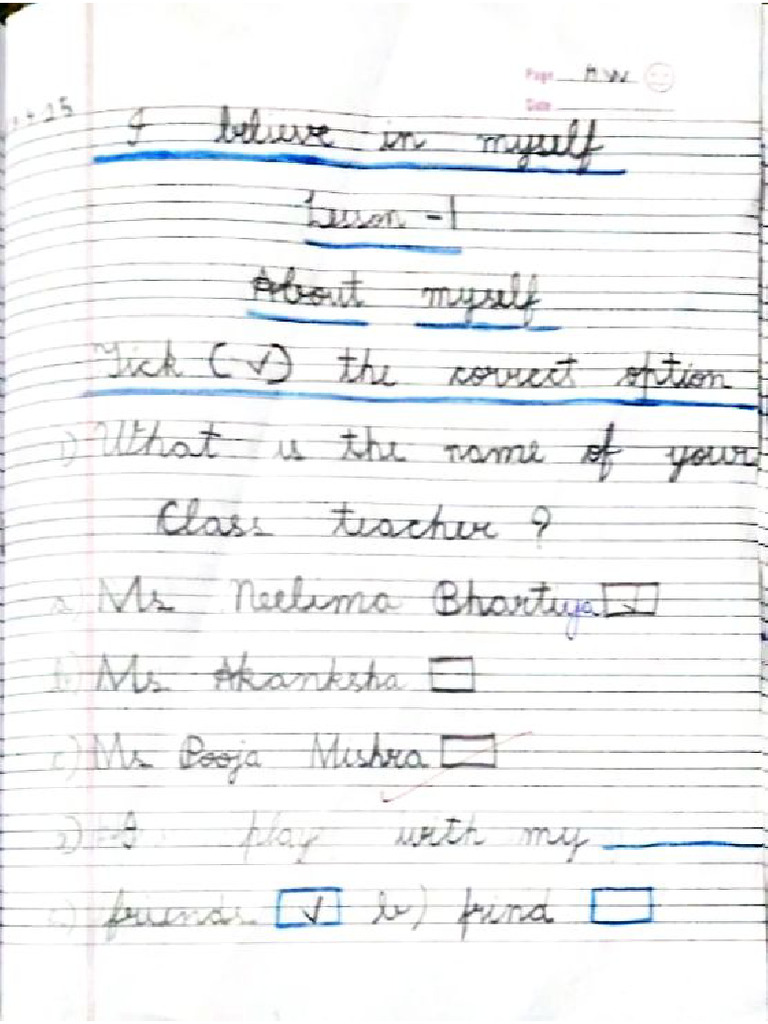 Page H.W
Date
I believe in myself
Lesson - 1
About myself
Tick (✓) the correct option
1) What is the name of your
Class teacher ?
a) Ms Neelima Bhartiya ✓
b) Ms Akanksha
c) Ms Pooja Mishra
2) I play with my ______
a) friends ✓ b) frind